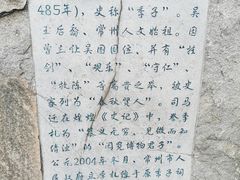 485年），史称“季子”。吴
王后裔、常州人文始祖。因
曾三让吴国国位，并有“挂
剑”、“观乐”、“守仁”、
“救陈”等高尚之举，被史
家列为“春秋贤人”。司马
迁在煌煌《史记》中，誉季
札为“慕义无穷，见微而知
清浊”的“闳览博物君子”。
公元2004年冬月，常州市人